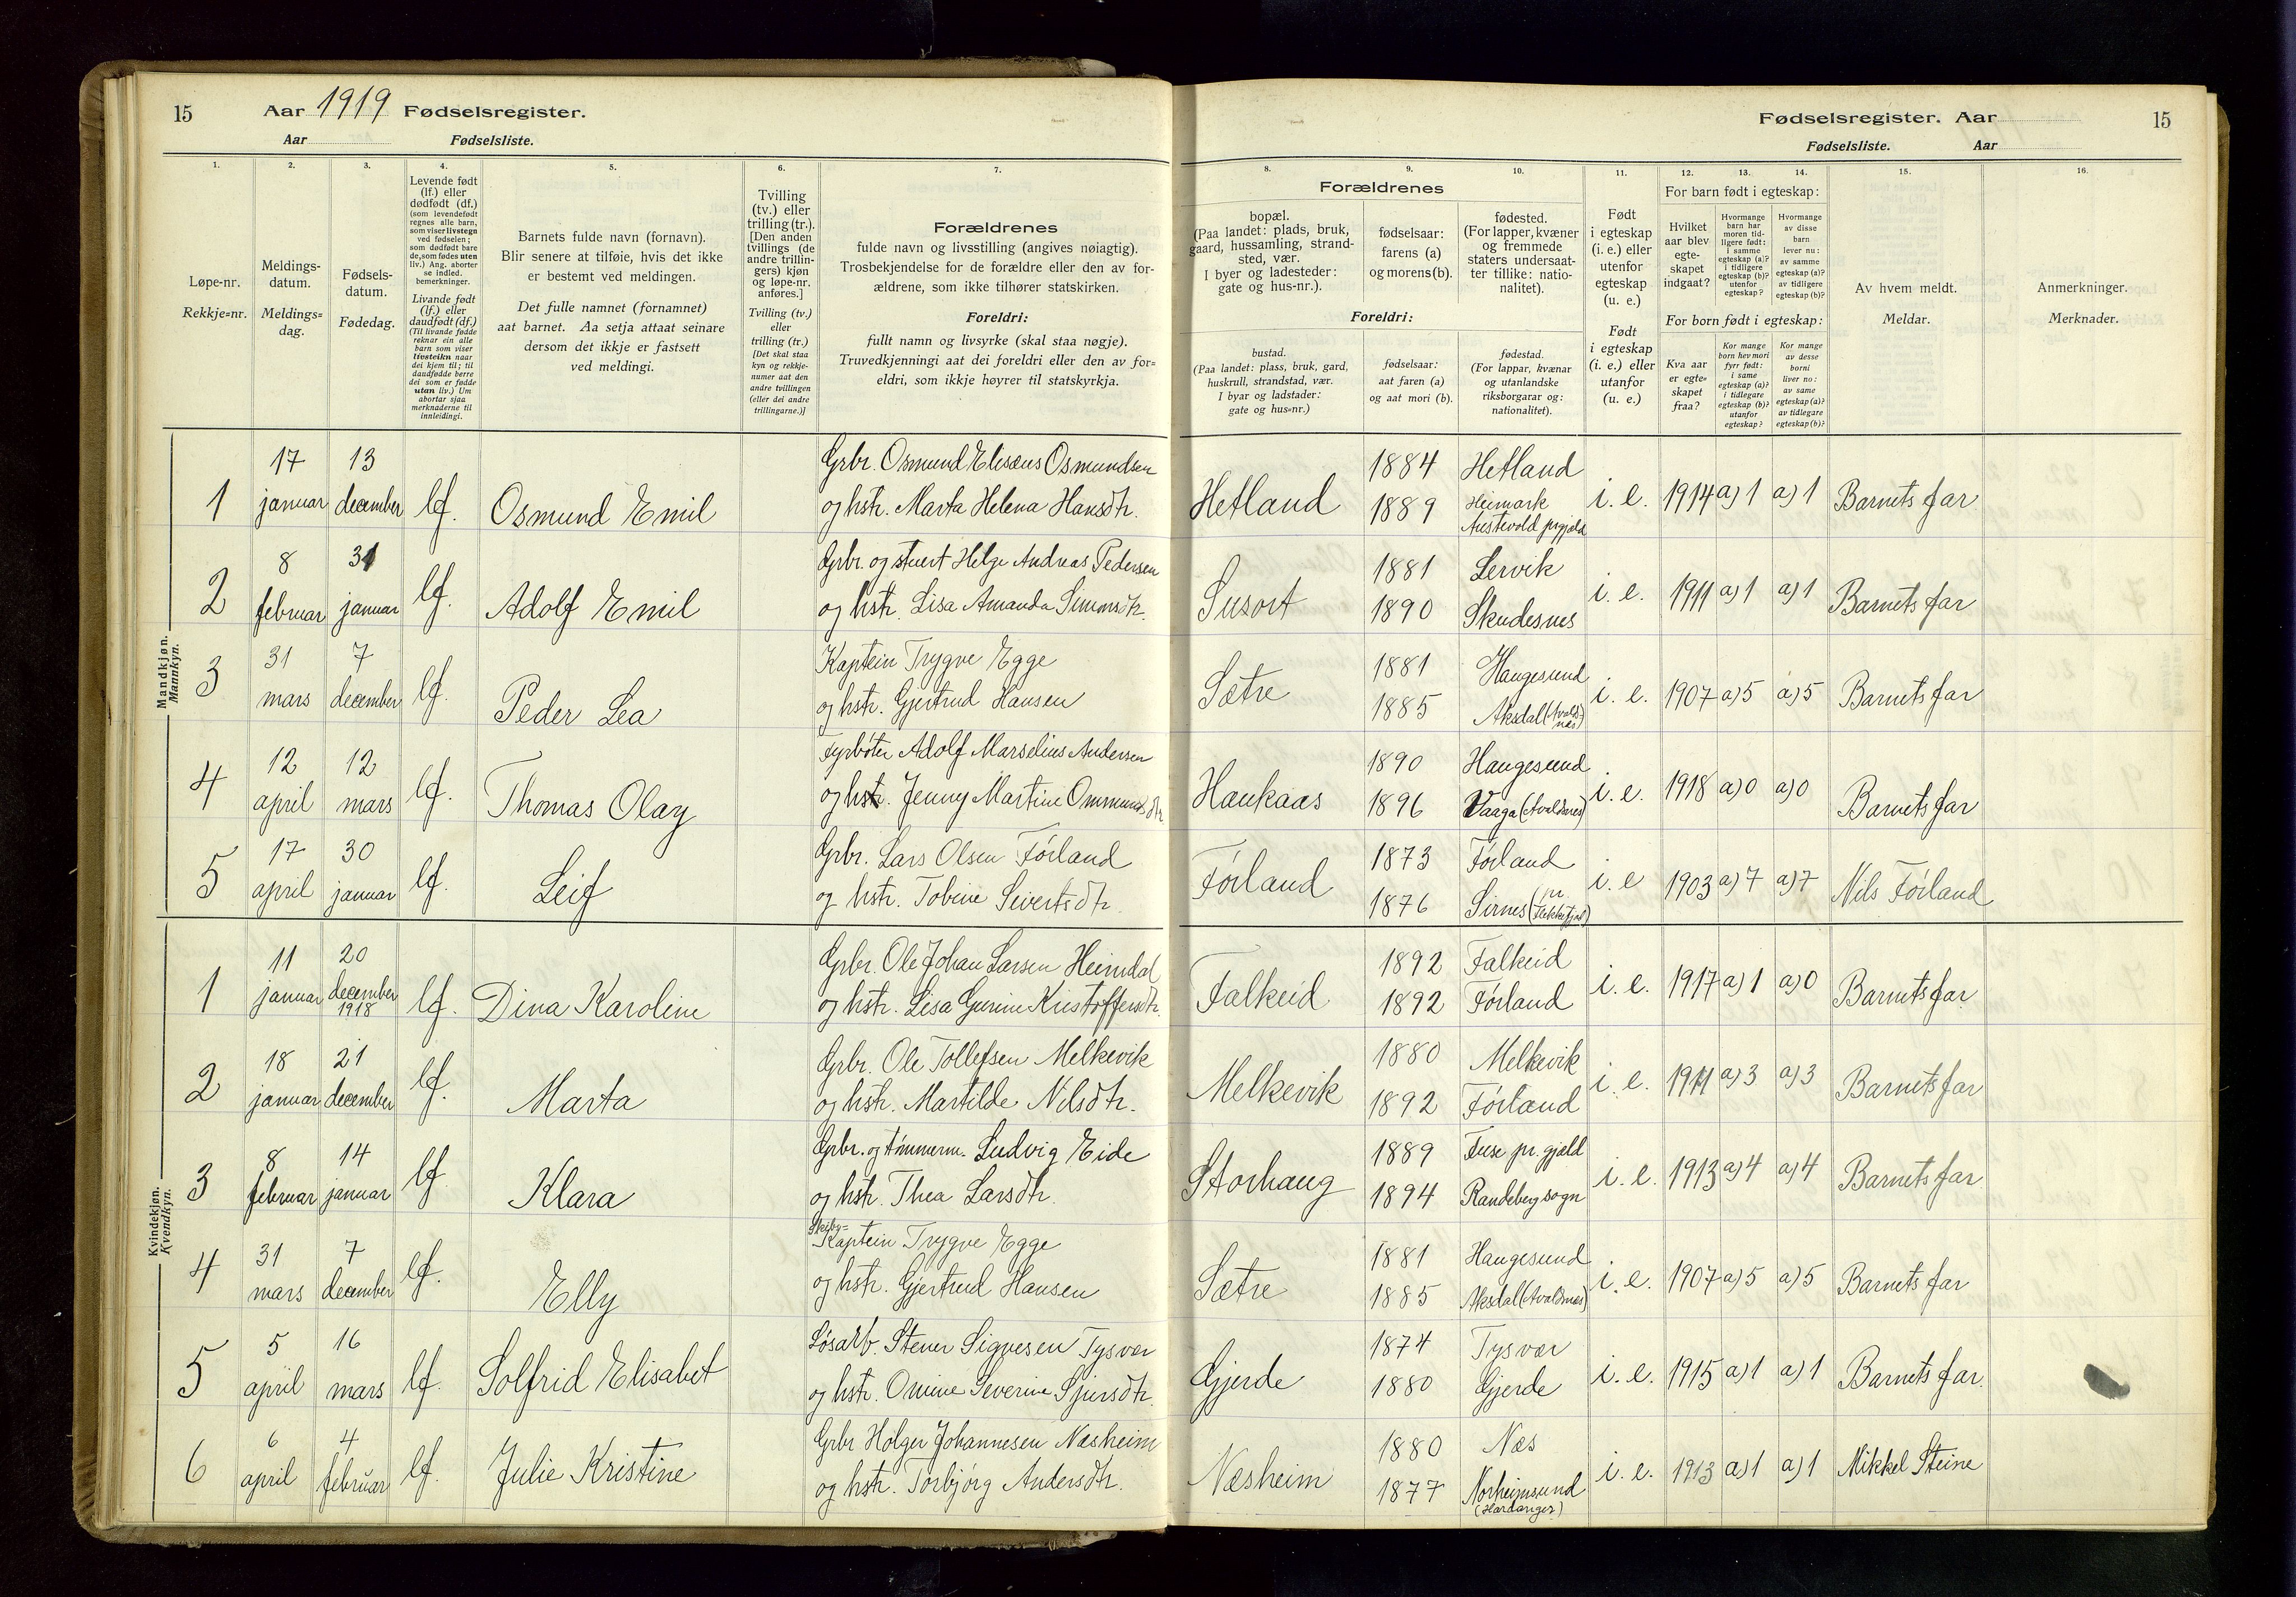 15 Aar 1919 Fødselsregister.
Aar Fødselsliste.
Fødselsregister. Aar 15
Fødselsliste. Aar
1.
Løpe-nr.
Rekkje=nr.
2.
Meldings-
datum.
Meldings=
dag.
3.
Fødsels-
datum.
Fødedag.
4.
Levende født
(lf.) eller
dødfødt (df.)
(som levendefødt
regnes alle barn,
som viser livstegn
ved fødselen;
som dødfødt bare
de, som fødes uten
liv.) Ang. aborter
se indled.
bemerkninger.
Livande født
(lf.) eller
daudfødt (df.)
(Til livande fødde
reknar ein alle
barn som viser
livsteikn naar
dei kjem til; til
daudfødde berre
dei som er fødde
utan liv.) Um
abortar sjaa
merknaderne til
innleidingi.
5.
Barnets fulde navn (fornavn).
Blir senere at tilføie, hvis det ikke
er bestemt ved meldingen.
Det fulle namnet (fornamnet)
aat barnet. Aa setja attaat seinare
dersom det ikkje er fastsett
ved meldingi.
6.
Tvilling
(tv.) eller
trilling (tr.).
[Den anden
tvillings (de
andre trillin-
gers) kjøn
og løpe-nr.
anføres.]
Tvilling (tv.)
eller
trilling (tr.)
[Det skal staa
kyn og rekkje-
numer aat den
andre tvillingen
(eller dei andre
trillingarne.)]
7.
Forældrenes
fulde navn og livsstilling (angives nøiagtig).
Trosbekjendelse for de forældre eller den av for-
ældrene, som ikke tilhører statskirken.
Foreldri:
fullt namn og livsyrke (skal staa nøgje).
Truvedkjenningi aat dei foreldri eller den av for=
eldri, som ikkje høyrer til statskyrkja.
Forældrenes
8.
bopæl.
(Paa landet: plads, bruk,
gaard, hussamling, strand-
sted, vær.
I byer og ladesteder:
gate og hus-nr.).
9.
fødselsaar:
farens (a)
og morens (b).
10.
fødested.
(For lapper, kvæner
og fremmede
staters undersaat-
ter tillike: natio-
nalitet).
Foreldri:
bustad.
(Paa landet: plass, bruk, gard,
huskrull, strandstad, vær.
I byar og ladstader:
gate og hus=nr.)
fødselsaar:
aat faren (a)
og aat mori (b).
fødestad.
(For lappar, kvænar
og utanlandske
riksborgarar og:
nationalitet).
11.
Født
i egteskap
(i. e.) eller
utenfor
egteskap
(u. e.)
Født
i egteskap
(i. e.) eller
utanfor
(u. e.)
12. 13. 14.
For barn født i egteskap:
Hvilket
aar blev
egte-
skapet
indgaat?
Hvormange
barn har
moren tid-
ligere født:
i samme
egteskap (a)?
i tidligere
egteskap (b)?
utenfor
egteskap?
Hvormange
av disse
barn
lever nu:
av samme
egteskap (a)?
av tidligere
egteskap (b)?
For born født i egteskap:
Kva aar
er egte=
skapet
fraa?
Kor mange
born hev mori
fyrr født:
i same
egteskap (a)?
i tidlegare
egteskap (b)?
utanfor
egteskap?
Kor mange
av desse
borni
liver no:
av same
egteskap (a)?
av tidlegare
egteskap (b)?
15.
Av hvem meldt.
Meldar.
16.
Anmerkninger.
Merknader.
Mandkjøn.
Mannkyn.
1 17 januar 13 december lf. Osmund Emil Grbr. Osmund Elisæus Osmundsen
og hstr. Marta Helena Hansdtr. Hetland 1884 Hetland
1889 Heimark
Austevold prgjeld i. e. 1914 a) 1 a) 1 Barnets far
2 8 februar 31 januar lf. Adolf Emil Grbr. og stuert Helge Andreas Pedersen
og hstr. Lisa Amanda Simonsdtr. Susort 1881 Lervik
1890 Skudesnes i. e. 1911 a) 1 a) 1 Barnets far
3 31 mars 7 december lf. Peder Lea Kaptein Trygve Egge
og hstr. Gjertrud Hansen Sætre 1881 Haugesund
1885 Aksdal (Avaldsnes) i. e. 1907 a) 5 a) 5 Barnets far
4 12 april 12 mars lf. Thomas Olay Fyrbøter Adolf Marselius Andersen
og hstr. Jenny Martine Ommundsdtr Haukaas 1890 Haugesund
1896 Vaaga (Avaldsnes) i. e. 1918 a) 0 a) 0 Barnets far
5 17 april 30 januar lf. Leif Grbr. Lars Olsen Førland
og hstr. Tobine Sivertsdtr Førland 1873 Førland
1876 Sirnes (pr. Flekkefjord) i. e 1903 a) 7 a) 7 Nils Førland
Kvindekjøn.
Kvendkyn.
1 11 januar 20 december 1918 lf. Dina Karoline Grbr. Ole Johan Larsen Heimdal
og hstr. Lisa Gurine Kristoffersdtr. Falkeid 1892 Falkeid
1892 Førland i. e. 1917 a) 1 a) 0 Barnets far
2 18 januar 21 december lf. Marta Grbr. Ole Tollefsen Melkevik
og hstr. Martilde Nilsdtr. Melkevik 1880 Melkevik
1892 Førland i. e. 1911 a) 3 a) 3 Barnets far
3 8 februar 14 januar lf Klara Grbr. og tømmerm. Ludvig Eide
og hstr. Thea Larsdtr. Storhaug 1889 Fuse pr. gjeld
1894 Randeberg sogn i. e. 1913 a) 4 a) 4 Barnets far
4 31 mars 7 december lf. Elly Skibs=
Kaptein Trygve Egge
og hstr. Gjertrud Hansen Sætre 1881 Haugesund
1885 Aksdal (Avaldsnes) i. e. 1907 a) 5 a) 5 Barnets far
5 5 april 16 mars lf. Solfrid Elisabet Løsarb. Stener Sigvesen Tysvær
og hstr. Omine Severine Sjursdtr. Gjerde 1874 Tysvær
1880 Gjerde i. e. 1915 a) 1 a) 1 Barnets far.
6 6 april 4 februar lf. Julie Kristine Grbr Holger Johannesen Næsheim
og hstr. Torbjörg Andersdtr. Næsheim 1880 Næs
1877 Norheimsund
(Hardanger) i. e. 1913 a) 1 a) 1 Mikkel Steine